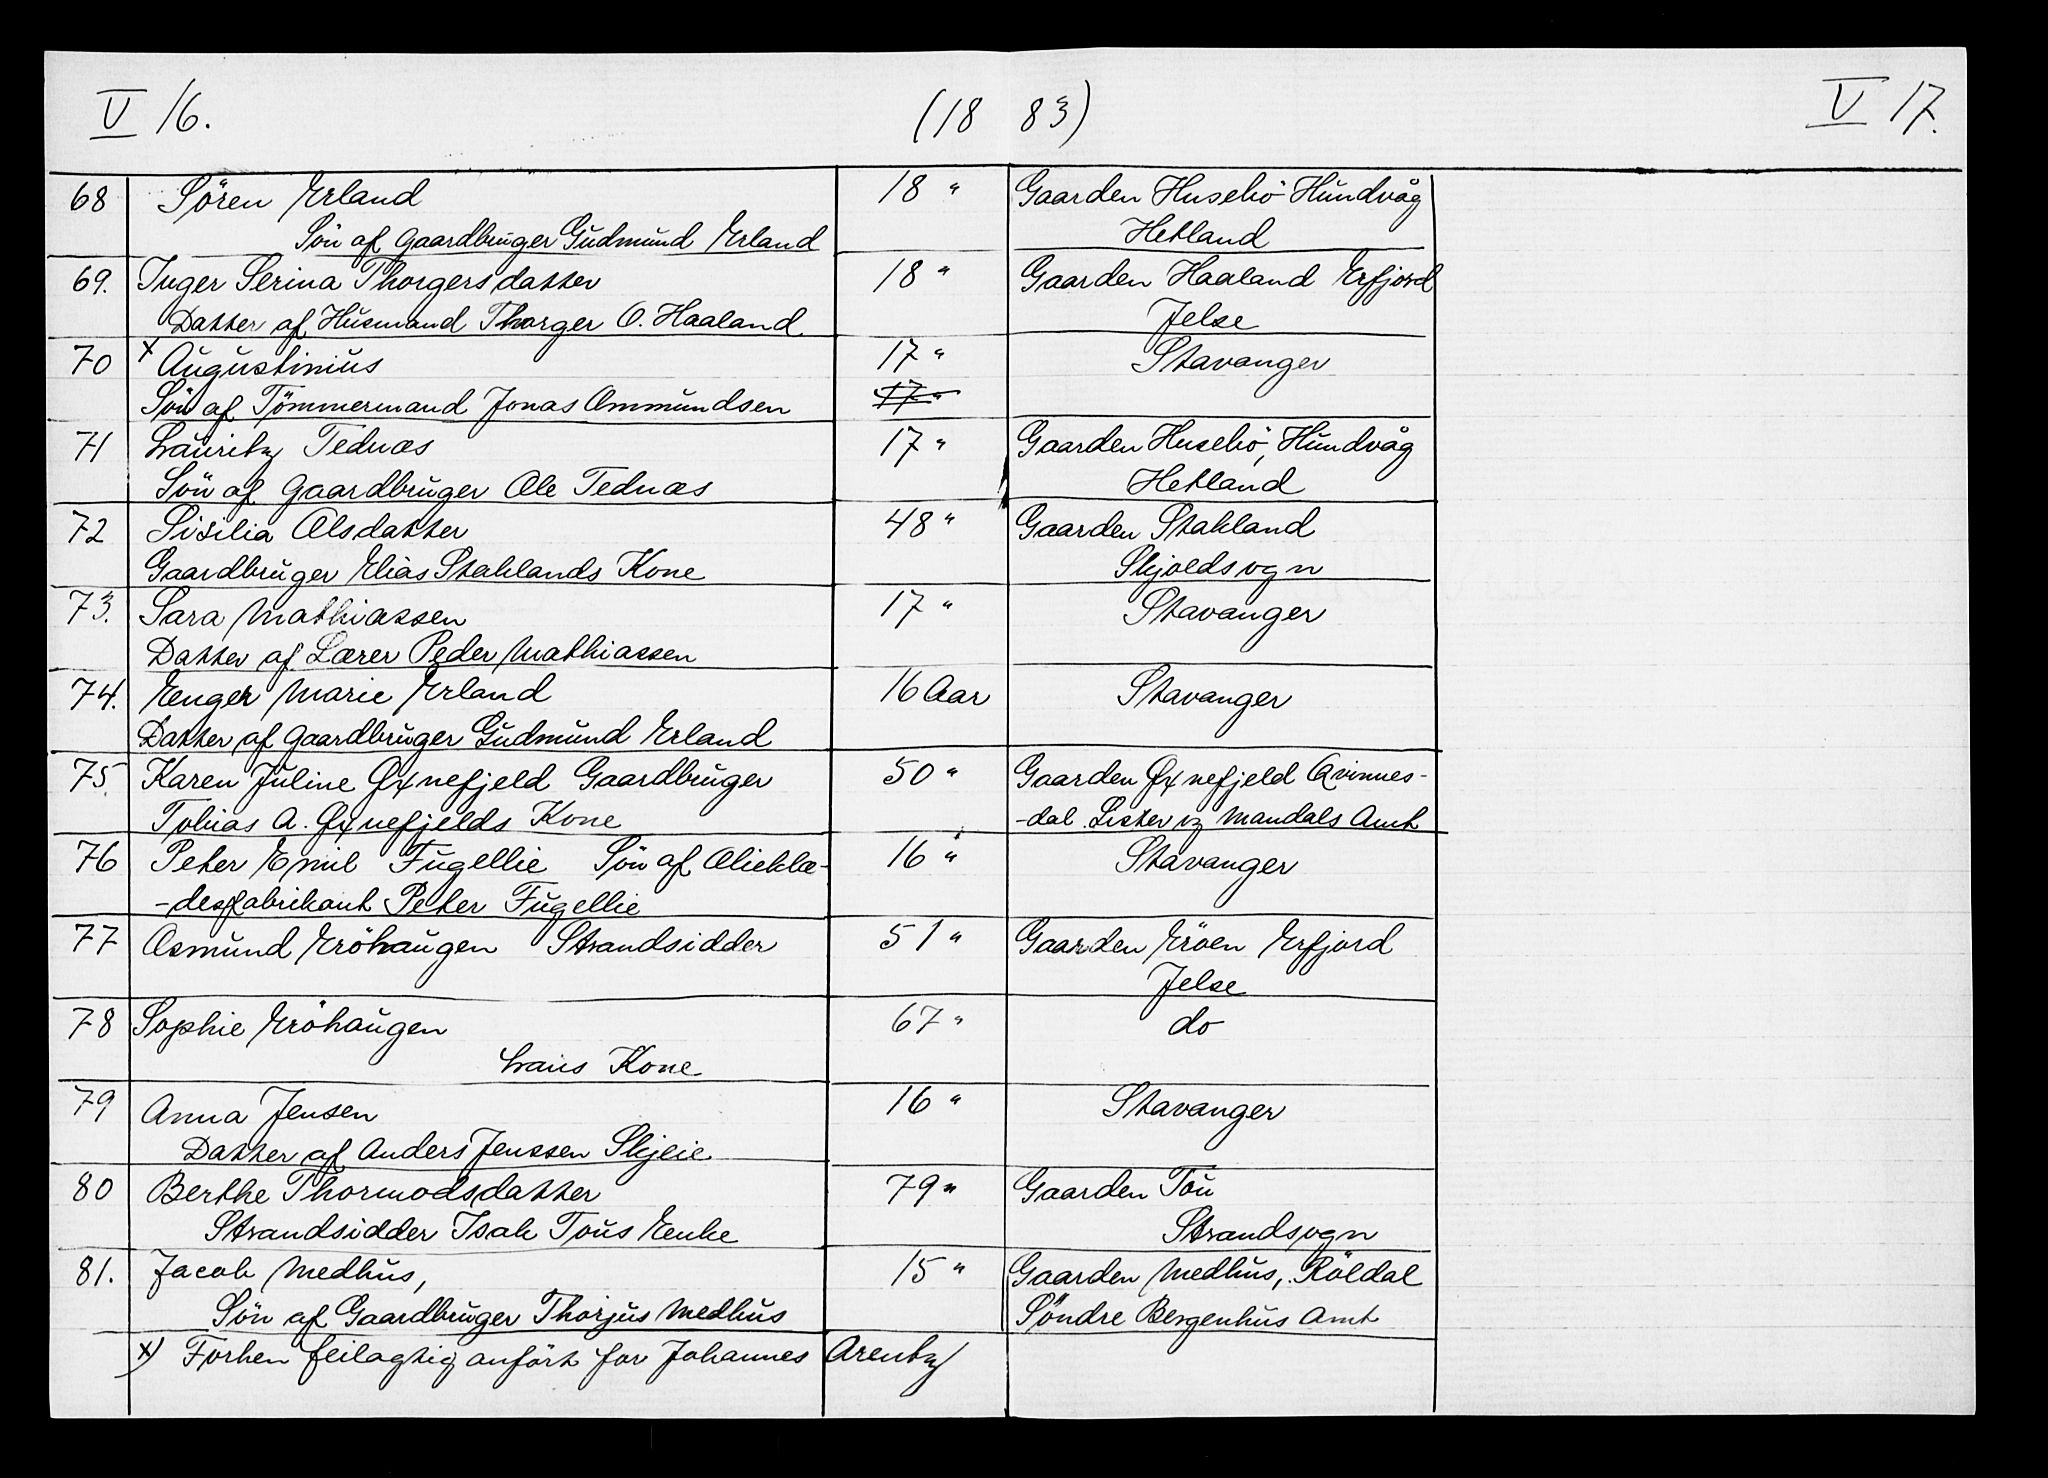 V 16. (18 83) V 17.
68 Sören Erland 18 " Gaarden Husebö Hundvåg
Sön af gaardbruger Gudmund Erland Hetland
69. Inger Serina Thorgersdatter 18 " Gaarden Haaland Erfjord
Datter af Husmand Thorger O. Haaland Jelse
70 x Augustinius 17 " Stavanger
Sön af Tömmermand Jonas Ommundsen 17 "
71 Lauritz Tednæs 17 " Gaarden Husebö, Hundvåg
Sön af gaardbruger Ole Tednæs Hetland
72 Sisilia Olsdatter 48 " Gaarden Stakland
Gaardbruger Elias Staklands Kone Skjoldsogn
73. Sara Mathiassen 17 " Stavanger
Datter af Lærer Peder Mathiassen
74. Enger Marie Erland 16 Aar Stavanger
Datter af gaardbruger Gudmund Erland
75. Karen Juline Øxnefjeld Gaardbruger 50 " Gaarden Øxnefjeld Qvinnes-
Tobias A. Øxnefjelds Kone -dal. Lister og Mandals Amt
76 Peter Emil Fugellie Sön af Olieklæ- 16 " Stavanger
-desfabrikant Peter Fugellie
77 Osmund Eröhaugen Strandsidder 51 " Gaarden Eröen Erfjord
Jelse
78 Sophie Eröhaugen 67 " do
hans Kone
79 Anna Jensen 16 " Stavanger
Datter af Anders Jenssen Skjeie
80 Berthe Thormodsdatter 79 " Gaarden Tou
Strandsidder Isak Tous Enke Strandsogn
81. Jacob Medhus, 15 " Gaarden Medhus, Röldal
Sön af Gaardbruger Thorjus Medhus Söndre Bergenhus Amt
x) Forhen feilagtig anfört for Johannes Arentz